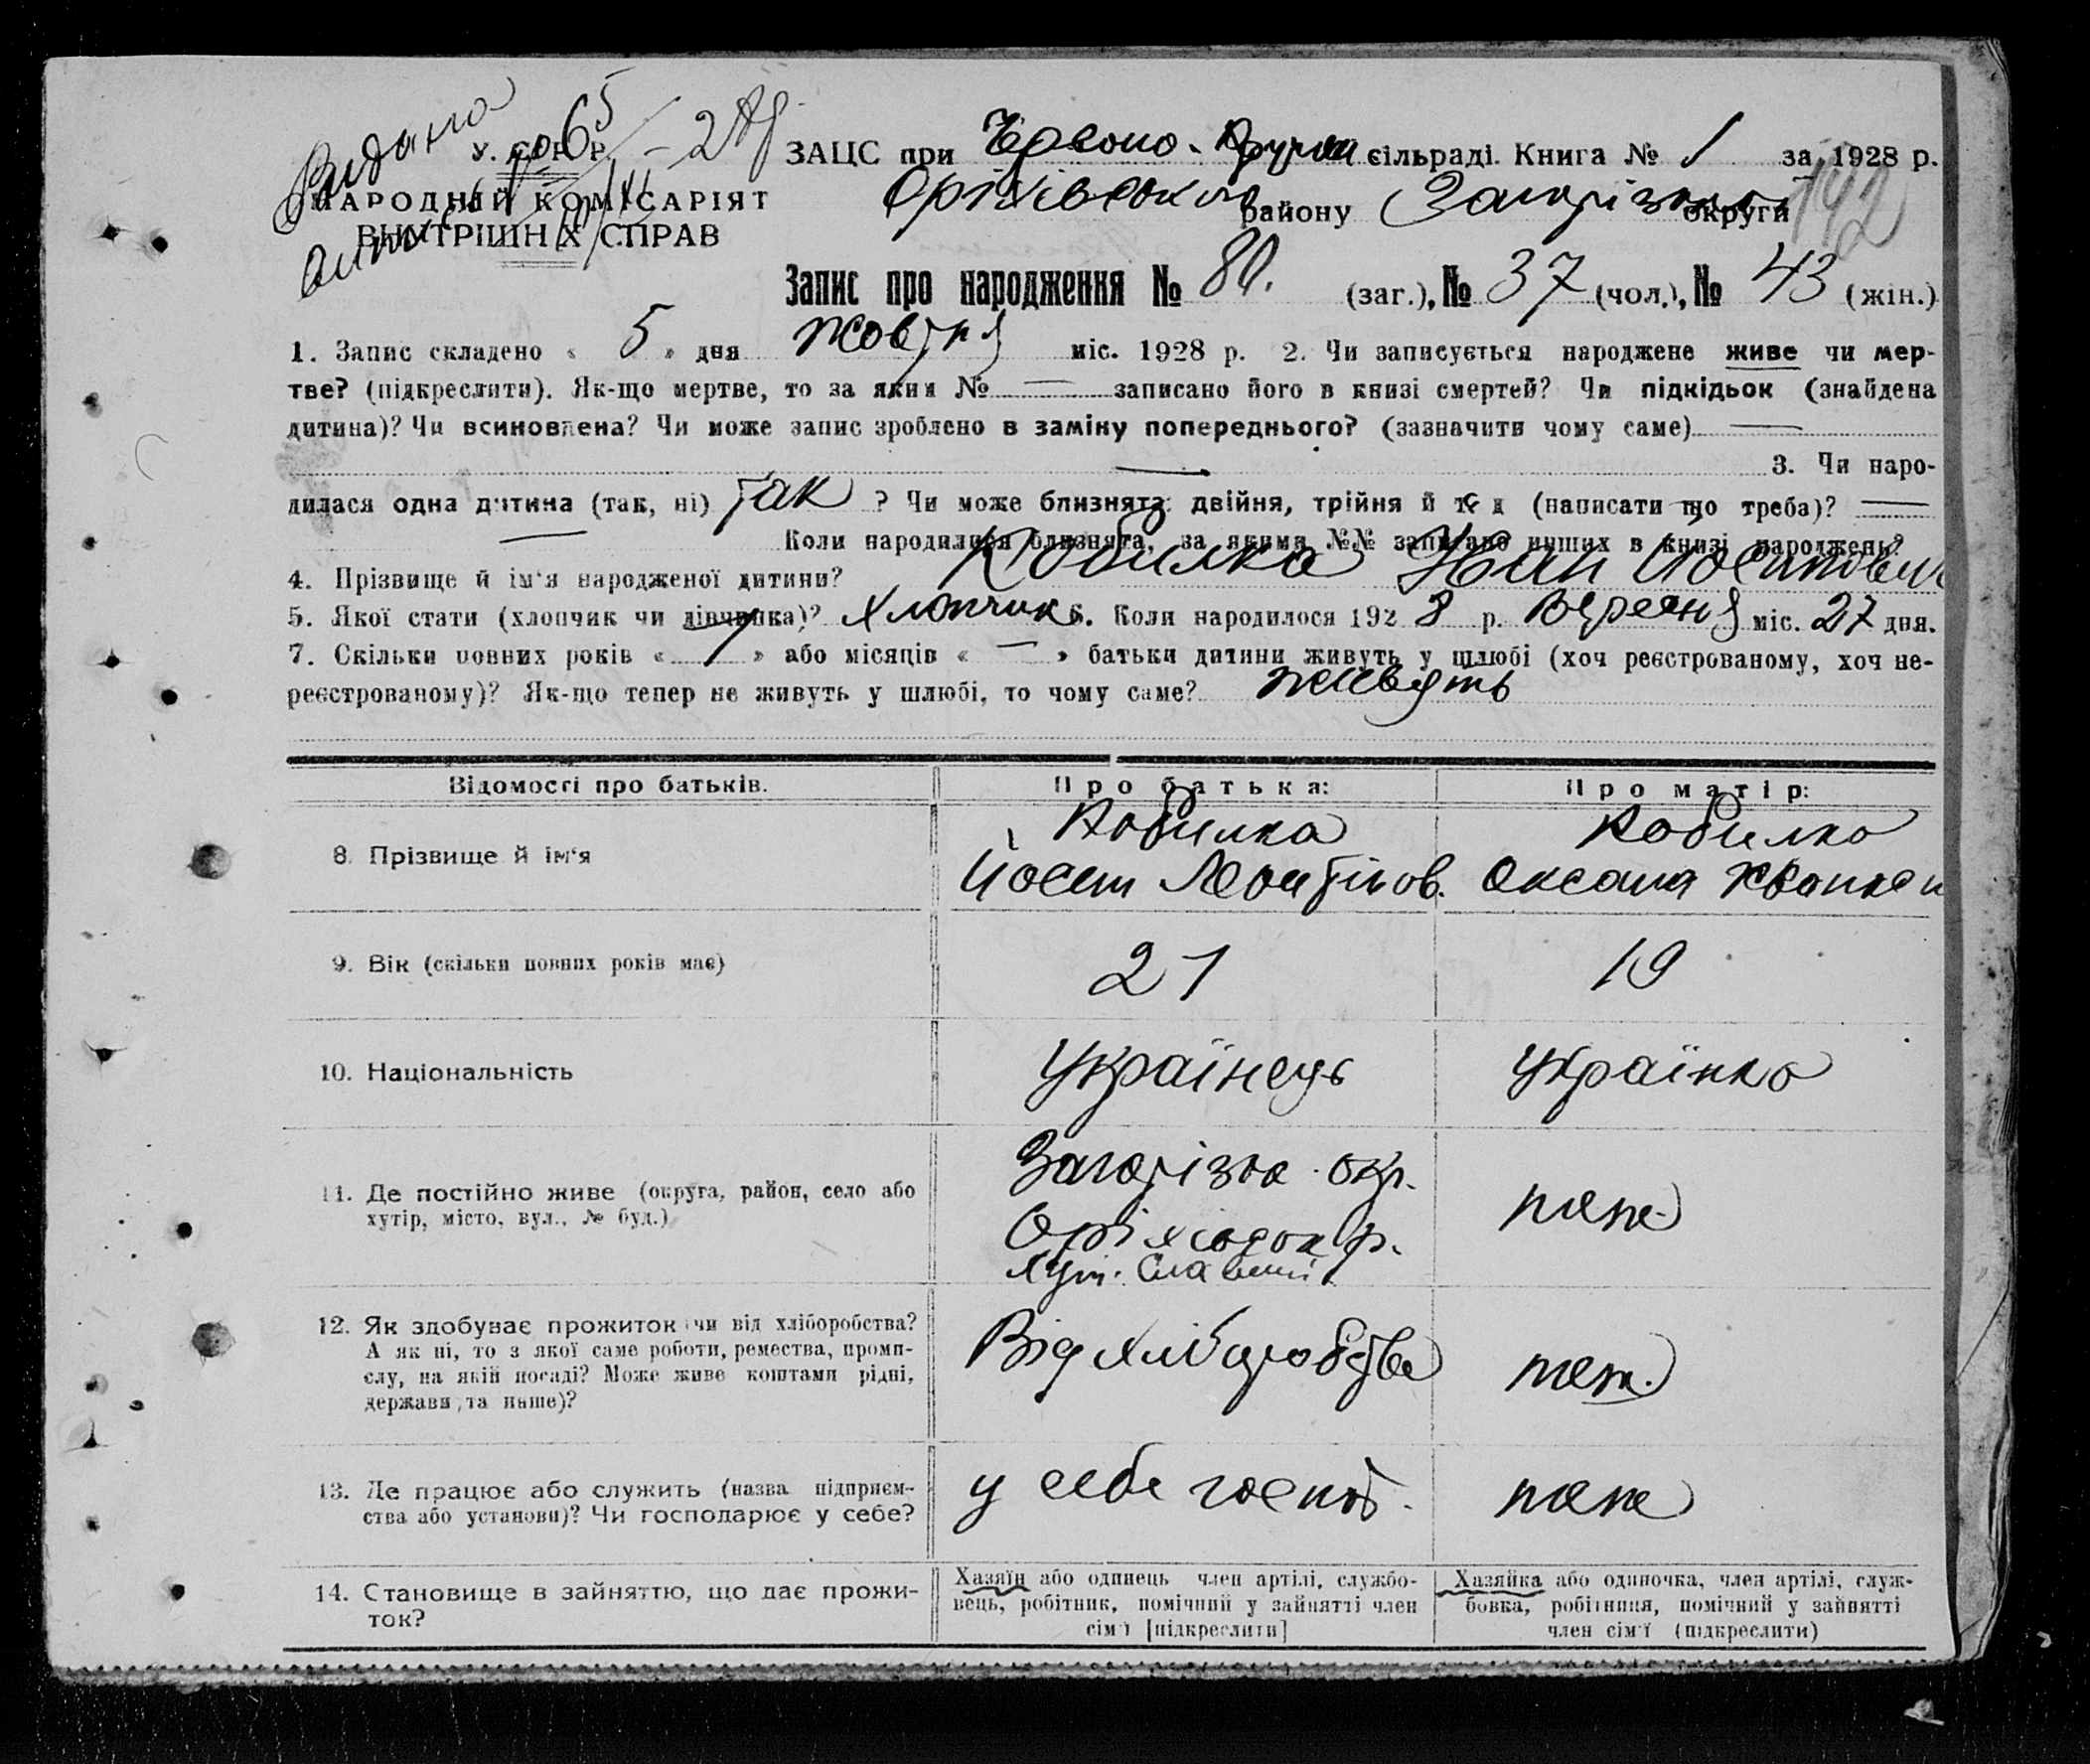 Видана
У. С. Р. Р.
НАРОДНІЙ КОМІСАРІЯТ
ВНУТРІШНІХ СПРАВ
ЗАЦС при Червоно- сільраді. Книга № 1 за 1928 р.
Оріхівського району Запорізької округи
142
Запис про народження № 80. (заг.), № 37 (чол.), № 43 (жін.)
1. Запис складено « 5 » дня жовтня міс. 1928 р. 2. Чи записується народжене живе чи мер-
тве? (підкреслити). Як-що мертве, то за яким № — записано його в книзі смертей? Чи підкідьок (знайдена
дитина)? Чи всиновлена? Чи може запис зроблено в заміну попереднього? (зазначити чому саме) —
— 3. Чи наро-
дилася одна дитина (так, ні) так ? Чи може близнята: двійня, трійня й т. д (написати що треба)? —
— Коли народилися близнята, за якими №№ записано инших в книзі народжень?
4. Прізвище й ім'я народженої дитини? Кобилка Іван Йосипович
5. Якої стати (хлопчик чи дівчинка)? хлопчик 6. Коли народилося 1928 р. Вересня міс. 27 дня.
7. Скільки повних років « 1 » або місяців « — » батьки дитини живуть у шлюбі (хоч реєстрованому, хоч не-
реєстрованому)? Як-що тепер не живуть у шлюбі, то чому саме? живуть
Відомості про батьків. Про батька: Про матір:
Кобилка Кобилка
8. Прізвище й ім'я Йосип Оксана
9. Вік (скільки повних років має) 21 19
10. Національність Українець Українка
11. Де постійно живе (округа, район, село або
хутір, місто, вул., № буд.)
Запорізка окр.
Оріхівськ р.
Хут.
теж
12. Як здобуває прожиток чи від хліборобства?
А як ні, то з якої саме роботи, ремества, проми-
слу, на якій посаді? Може живе коштами рідні,
держави, та инше)?
Від хліборобства теж.
13. Де працює або служить (назва підприєм-
ства або установи)? Чи господарює у себе?
у себе господ. теж
14. Становище в зайняттю, що дає прожи-
ток?
Хазяїн або одинець член артілі, службо-
вець, робітник, помічний у зайнятті член
сім'ї [підкреслити]
Хазяйка або одиночка, член артілі, служ-
бовка, робітниця, помічний у зайнятті
член сім'ї (підкреслити)